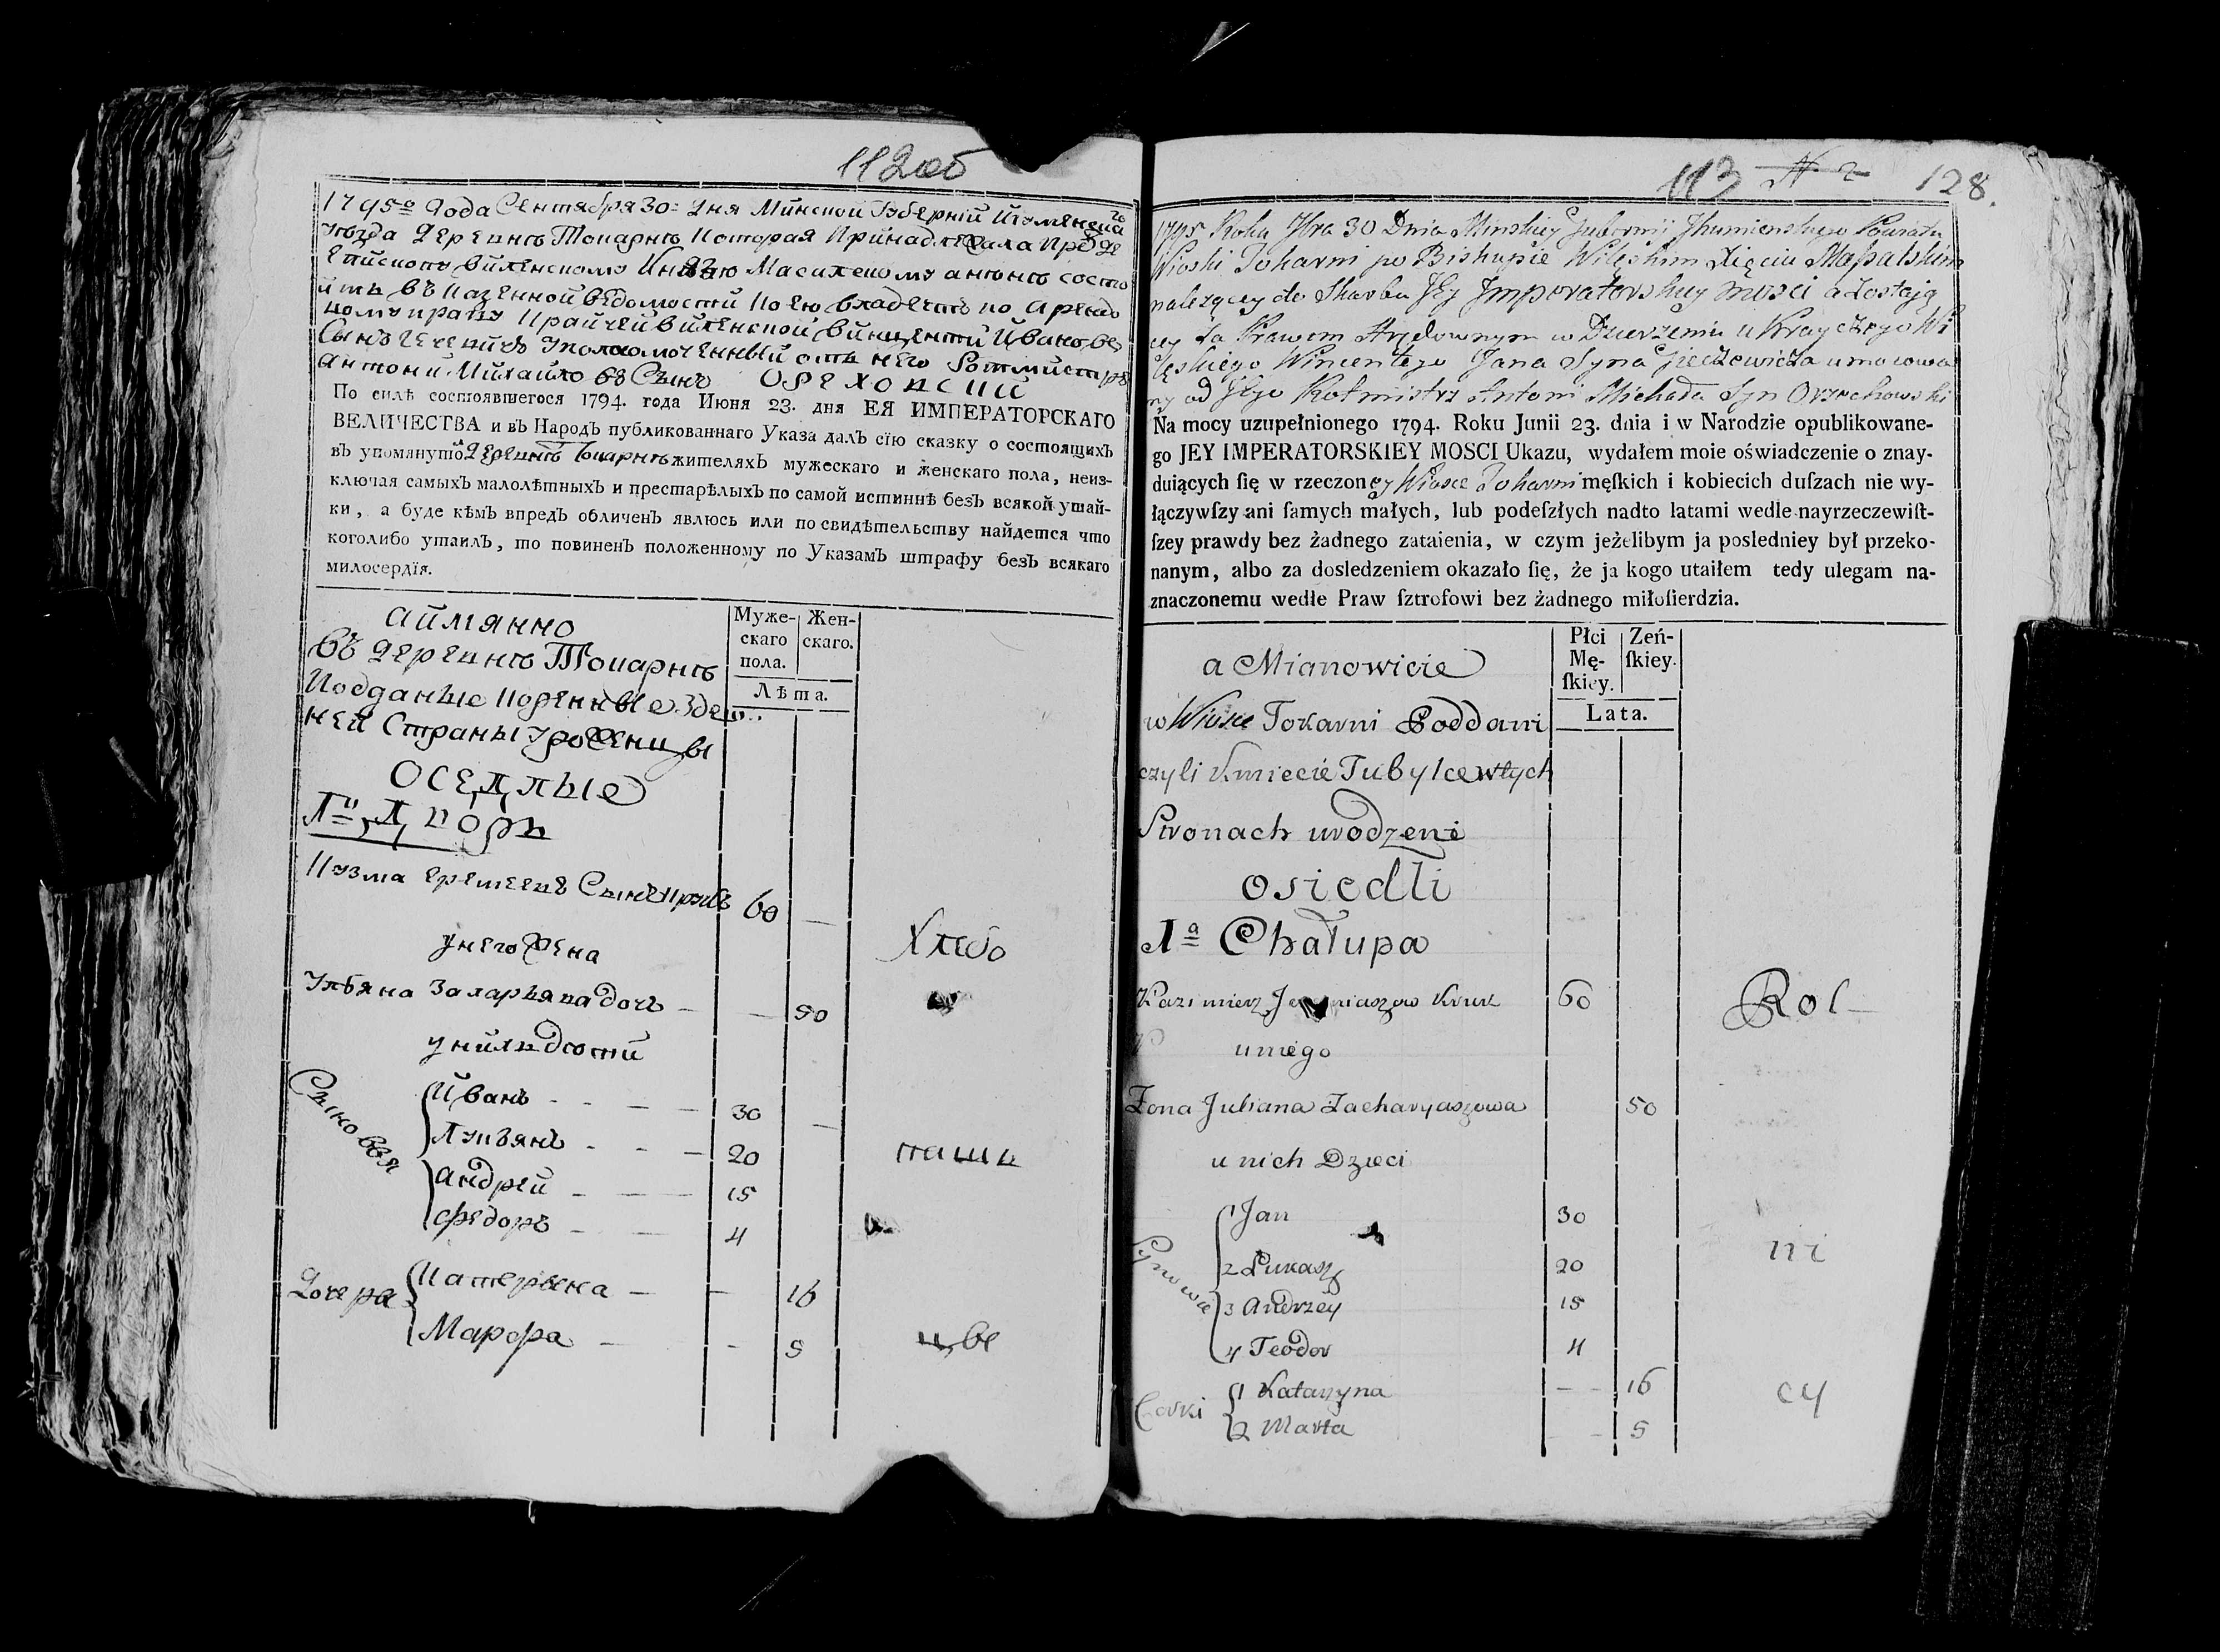 112 об
1795º Года Сентября 30: дня Минской Губернïи Игуменскаго
уезда деревнѣ Токарнѣ которая принадлежала прежде
Епископу Виленскому Князю Масалскому а нынѣ состо
итъ въ казенной ведомости коею владеетъ по Аренд
ному праву Крайчей Виленской Винцентй Иванов
Сынъ уполномоченный отъ него Ротмистръ
Антони Михайловъ Сынъ Орехонскии
По силѣ состоявшегося 1794. года Июня 23. дня ЕЯ ИМПЕРАТОРСКАГО
ВЕЛИЧЕСТВА и въ Народъ публикованнаго Указа далъ сїю сказку о состоящихъ
въ упомянутой деревнѣ Токарнѣ жителяхъ мужескаго и женскаго пола, неиз-
ключая самыхъ малолѣтныхъ и престарѣлыхъ по самой истиннѣ безъ всякой утай-
ки, а буде кѣмъ впредъ обличенъ явлюсь или по свидѣтельству найдется что
коголибо утаилъ, то повиненъ положенному по Указамъ штрафу безъ всякаго
милосердїя.
Муже-
скаго
пола.
Жен-
скаго.
Лѣта.
Аймянно
въ деревнѣ Токарнѣ
Подданые коренные здеш
ней Страны уроженцы
Оседлые
1й Дворъ
Кузма Еремеевъ Сынъ Крукъ 60 —
у него Жена
Ульяна Захарьяна дочъ — — 50
у нихъ дети
Сыновья
Иванъ - - — — 30 —
Лукьянъ - - — 20
Андрей — — — 15
Федоръ — — 4
Дочера
Катерына — — 16
Марфа — - 5
Хлебо
паш
цы
113 N 2 128.
1795 Roku 7bra 30 Dnia Minskiey Gubernii Jhumienskiego Powiatu
Wioski Tokarni po Biskupie Wileńskim Xięciu Massalskim
należącey do Skarbu Jey Jmperatorskiey Mości a zostają
cey za Prawem Arędownym w Dzierżeniu u Krayczego Wi
leńskiego Wincentego Jana Syna umocowa
ny od Jego Rotmistrz Antoni Michała Syn Orzechowski
Na mocy uzupełnionego 1794. Roku Junii 23. dnia i w Narodzie opublikowane-
go JEY IMPERATORSKIEY MOSCI Ukazu, wydałem moie oświadczenie o znay-
duiących ſię w rzeczoney Wiosce Tokarni męſkich i kobiecich duſzach nie wy-
łączywſzy ani ſamych małych, lub podeſzłych nadto latami wedle nayrzeczewiſt-
ſzey prawdy bez żadnego zataienia, w czym jeżelibym ja posledniey był przeko-
nanym, albo za dosledzeniem okazało ſię, że ja kogo utaiłem tedy ulegam na-
znaczonemu wedle Praw ſztrofowi bez żadnego miłoſierdzia.
Płci
Mę-
ſkiey.
Zeń-
ſkiey.
Lata.
a Mianowicie
w Wiosce Tokarni Poddani
czyli Kmiecie Tubylce w tych
Stronach urodzeni
osiedli
1a Chałupa
Kazimierz Jeremiaszow Kruk 60
u niego
Zona Juliana Zacharyaszowa 50
u nich Dzieci
Synowie
1 Jan 30
2 Łukasz 20
3 Andrzey 15
4 Teodor 4
Corki
1 Katarzyna — - 16
2 Marta - - 5
Rol—
ni
cy